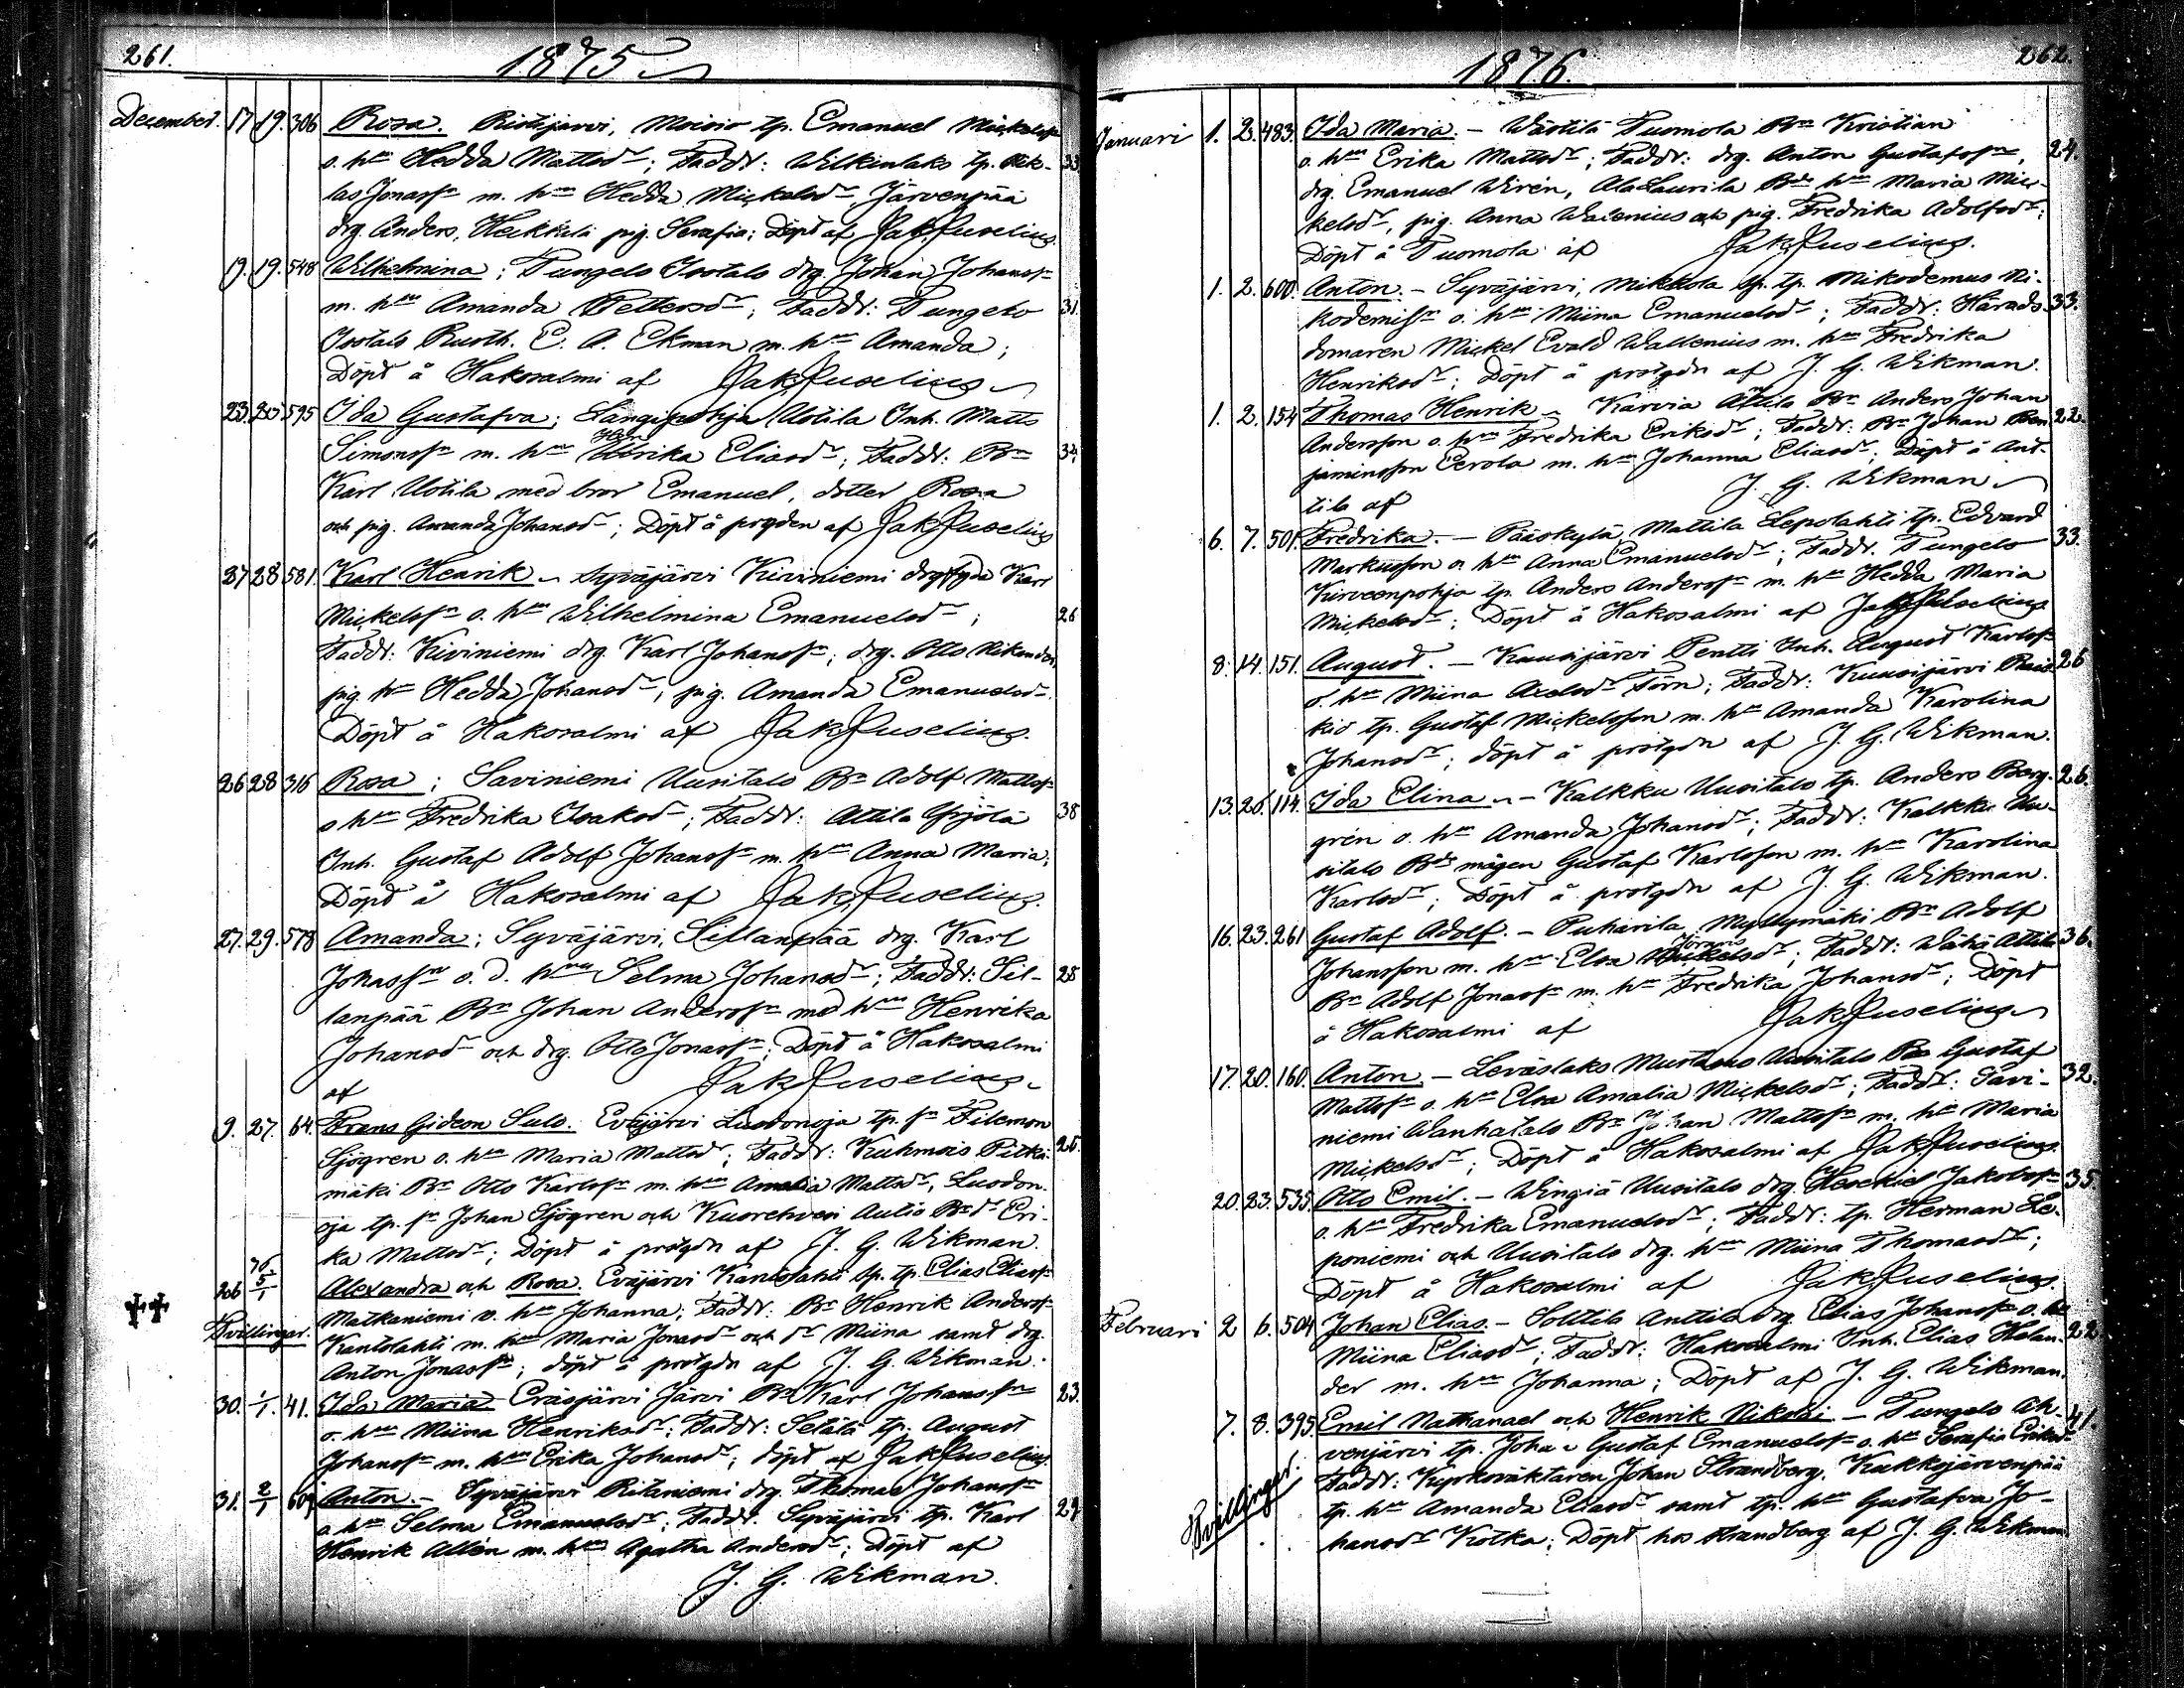 261.
1875
December. 17 19. 306 Rosa. Ristijärvi, Moisio tp. Emanuel Mickelsſn
o. hn Hedda Mattsdr; Faddr: Wilkinlaks tp. Nik- 33
las Jonasſn m. hn Hedda Mickelsdr, Järvenpää
drg. Anders, Heikkilä pig. Serafia; Döpt af Jak. Juselius
19. 19. 548 Wilhelmina; Pungelo Isotalo drg. Johan Johansſn
m. hn Amanda Pettersdr; Faddr: Pungelo 31
Isotalo Rusth. C. A. Ekman m. hn Amanda;
Döpt å Hakosalmi af Jak Juselius
23. 25 595 Ida Gustafva; Längipohja Uotila Inh. Matts
Simonsſn m. hn Ulrika Eliasdr; Faddr: Bn 34
Karl Uotila med bror Emanuel, dotter Rosa
och pig. Amanda Johansdr; Döpt å prgden af Jak Juselius
27 28 581. Karl Henrik - Syväjärvi Kiviniemi drg Karl
Mickelsſn o. hn Wilhelmina Emanuelsdr; 26
Faddr: Kiviniemi drg. Karl Johansſn, drg. Otto Nikander,
pig. hn Hedda Johansdr, pig. Amanda Emanuelsdr.
Döpt å Hakosalmi af Jak Juselius.
26 28 316 Rosa; Saviniemi Uusitalo Bn Adolf Mattsſn
o hn Fredrika Isaksdr; Faddr: Attila Yrjölä 38
Inh. Gustaf Adolf Johansſn m. hn Anna Maria;
Döpt å Hakosalmi af Jak Juselius.
27. 29. 578 Amanda; Syväjärvi, Sillanpää drg. Karl
Johansſn o. d. hn Selma Johansdr; Faddr: Sil- 28
lanpää Bn Johan Andersſn med hn Henrika
Johansdr och drg. Otto Jonasſn; Döpt å Hakosalmi
af Jak Juselius
9. 27. 64. Frans Gideon Sulo. Eväjärvi Luodonoja tp. sn Filemon
Sjögren o. hn Maria Mattsdr; Faddr: Kuhmois Pitkä- 25.
mäki Bn Otto Karlsſn m. hn Amalia Mattsdr, Luodon-
oja tp. sn Johan Sjögren och Kuorehvesi Autio Bn dr Eri-
ka Mattsdr; Döpt å prstgdn af J. G. Wikman.
26 76 5/1 Alexandra och Rosa. Eväjärvi Kantolahti sp. tp. Elias Eliasſn
Matkaniemi o. hn Johanna; Faddr: Bn Henrik Andersſn
Tvillingar. Kantolahti m. hn Maria Jonasdr och dr Miina samt drg.
Anton Jonasſn; döpt å prstgdn af J. G. Wikman.
30. 1/1. 41. Ida Maria Eräsjärvi Järvi Bn Karl Johansſn 23.
o. hn Miina Henriksdr; Faddr: Setälä tp. August
Johansſn m. hn Erika Johansdr; döpt af Jak Juselius.
31. 2/1 609 Anton. - Syväjärvi Ritaniemi drg. Thomas Johansſn
o. hn Selma Emanuelsdr; Faddr: Syväjärvi tp. Karl 29
Henrik Allén m. hn Agatha Andersdr; Döpt af
J. G. Wikman.
1876.
262.
Januari 1. 2. 483. Ida Maria. - Västilä Tuomola Bn Kristian
o. hn Erika Mattsdr; Faddr: drg. Anton Gustafsſn, 24.
drg. Emanuel Wirén, AlaLaurila Bds hn Maria Mic-
kelsdr, pig. Anna Walenius och pig. Fredrika Adolfsdr;
Döpt å Tuomola af Jak Juselius.
1. 2. 600. Anton. - Syväjärvi, Mikkola sp. tp. Nikodemus Ni-
kodemisſn o. hn Miina Emanuelsdr; Faddr: Härads- 33.
domaren Mickel Evald Wallenius m. hn Fredrika
Henriksdr; Döpt å prstgdn af J. G. Wikman.
1. 2. 154 Thomas Henrik - Karvia Attila Bn Anders Johan
Andersson o. hn Fredrika Eriksdr; Faddr: Bn Johan Ben- 22.
jaminsson Eerola m. hn Johanna Eliasdr; Döpt å Ant-
tila af J. G. Wikman
6. 7. 501. Fredrika. - Pääskylä Mattila Lepolahti tp. Edvard
Markusson o. hn Anna Emanuelsdr; Faddr. Pungelo 33.
Kirveenpohja tp. Anders Andersſn m. hn Hedda Maria
Mickelsdr; Döpt å Hakosalmi af Jak Juselius
8. 14. 151. August. - Kuusijärvi Pentti Inh. August Karlsſn
o. hn Miina Axelsdr Törn; Faddr: Kuusijärvi Rais- 26
kio tp. Gustaf Mickelsson m. hn Amanda Karolina
Johansdr; döpt å prstgdn af J. G. Wikman.
13. 26. 114. Ida Elina - Kalkku Uusitalo tp. Anders Berg- 26.
grén o. hn Amanda Johansdr; Faddr: Kalkku Uu-
sitalo Bds mågen Gustaf Karlsson m. hn Karolina
Karlsdr; Döpt å prstgdn af J. G. Wikman.
16. 23. 261 Gustaf Adolf. - Puharila Myllymäki Bn Adolf
Johansson m. hn Elsa Jöranis Mickelsdr; Faddr: Wähä Attila 36.
Bn Adolf Jonasſn m. hn Fredrika Johansdr; Döpt
å Hakosalmi af Jak Juselius
17. 20. 160. Anton - Leväslaks Mustanas Uusitalo Bn Gustaf
Mattsſn o. hn Elsa Amalia Mickelsdr; Faddr: Savi- 32.
niemi Wanhatalo Bn Johan Mattsſn m. hn Maria
Mickelsdr; Döpt å Hakosalmi af Jak Juselius.
20. 23. 535. Otto Emil. - Wingiä Uusitalo drg. Hesekiel Jakobsſn 35.
o. hn Fredrika Emanuelsdr; Faddr: tp. Herman Le-
poniemi och Uusitalo drg. hn Miina Thomasdr;
Döpt å Hakosalmi af Jak. Juselius.
Februari 2 6. 504 Johan Elias. - Solttila Anttila drg. Elias Johansſn o. hn
Miina Eliasdr; Faddr: Hakosalmi Inh. Elias Helan- 22
der m. hn Johanna; Döpt af J. G. Wikman.
7. 8. 395. Emil Nathanael och Henrik Nikolai - Pungelo Ah- 41.
venjärvi tp. Johan Gustaf Emanuelsſn o. hn Serafia Eriksdr
Tvillingar. Faddr: Kyrkoväktaren Johan Strandberg, Kukkojärvenpää
tp. hn Amanda Eliasdr samt tp. hn Gustafva Jo-
hansdr Kotka; Döpt hos Strandberg af J. G. Wikman